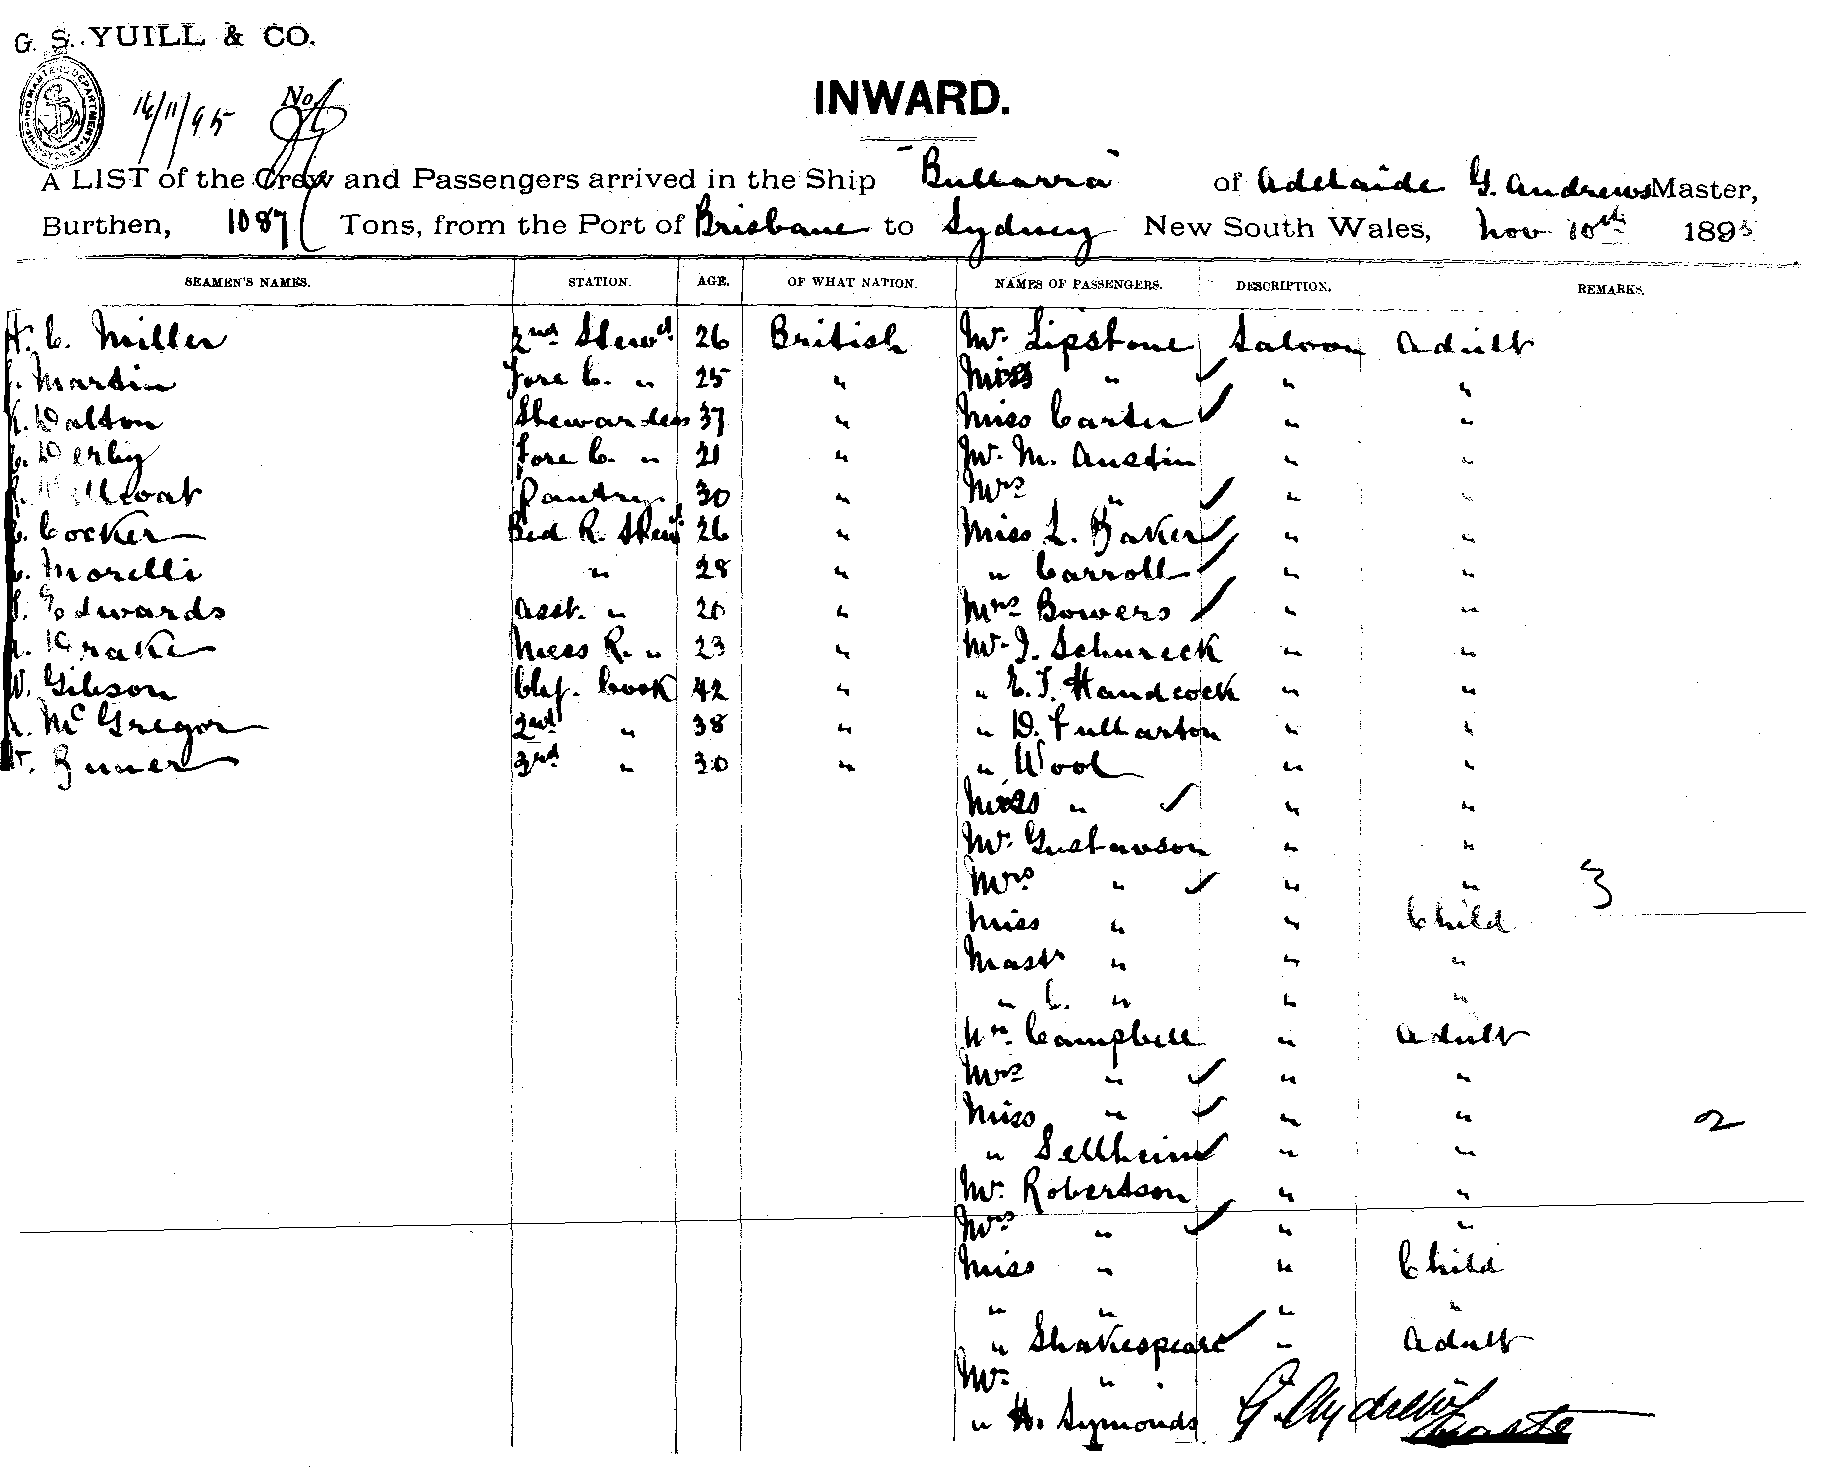 G. S. YUILL & CO.
SHIPPING MASTER'S DEPARTMENT
16/11/95 No
INWARD.
A LIST of the Crew and Passengers arrived in the Ship "Bullarra" of Adelaide G. Andrews Master,
Burthen, 1087 Tons, from the Port of Brisbane to Sydney New South Wales, Nov 10th 1895
SEAMEN'S NAMES. STATION. AGE. OF WHAT NATION. NAMES OF PASSENGERS. DESCRIPTION. REMARKS.
H. C. Miller 2nd Stewd 26 British Mr. Lipstone Saloon Adult
Martin Fore C. " 25 " Miss " " "
Dalton Stewardess 37 " Miss Carter " "
Derby Fore C. " 21 " Mr. M. Austin " "
Pantry 30 " Mrs " " "
Cocker Bed R. Stewd 26 " Miss L. Baker " "
Morelli " 28 " " Carroll " "
Edwards Asst. " 20 " Mrs Bowers " "
Drake Mess R. " 23 " Mr. J. Schureck " "
W. Gibson Chf. Cook 42 " " E. J. Handcock " "
McGregor 2nd " 38 " " D. Fullarton " "
3rd " 30 " " Wool " "
Miss " " "
Mr. Gustavson " "
Mrs " " " 3
Miss " " Child
Mastr " " "
" C. " " "
Mr. Campbell " Adult
Mrs " " "
Miss " " " 2
" Sellheim " "
Mr. Robertson " "
Mrs " " "
Miss " " Child
" " " "
" Shakespeare " Adult
Mr. "
" H. Symonds G. Andrews
Master